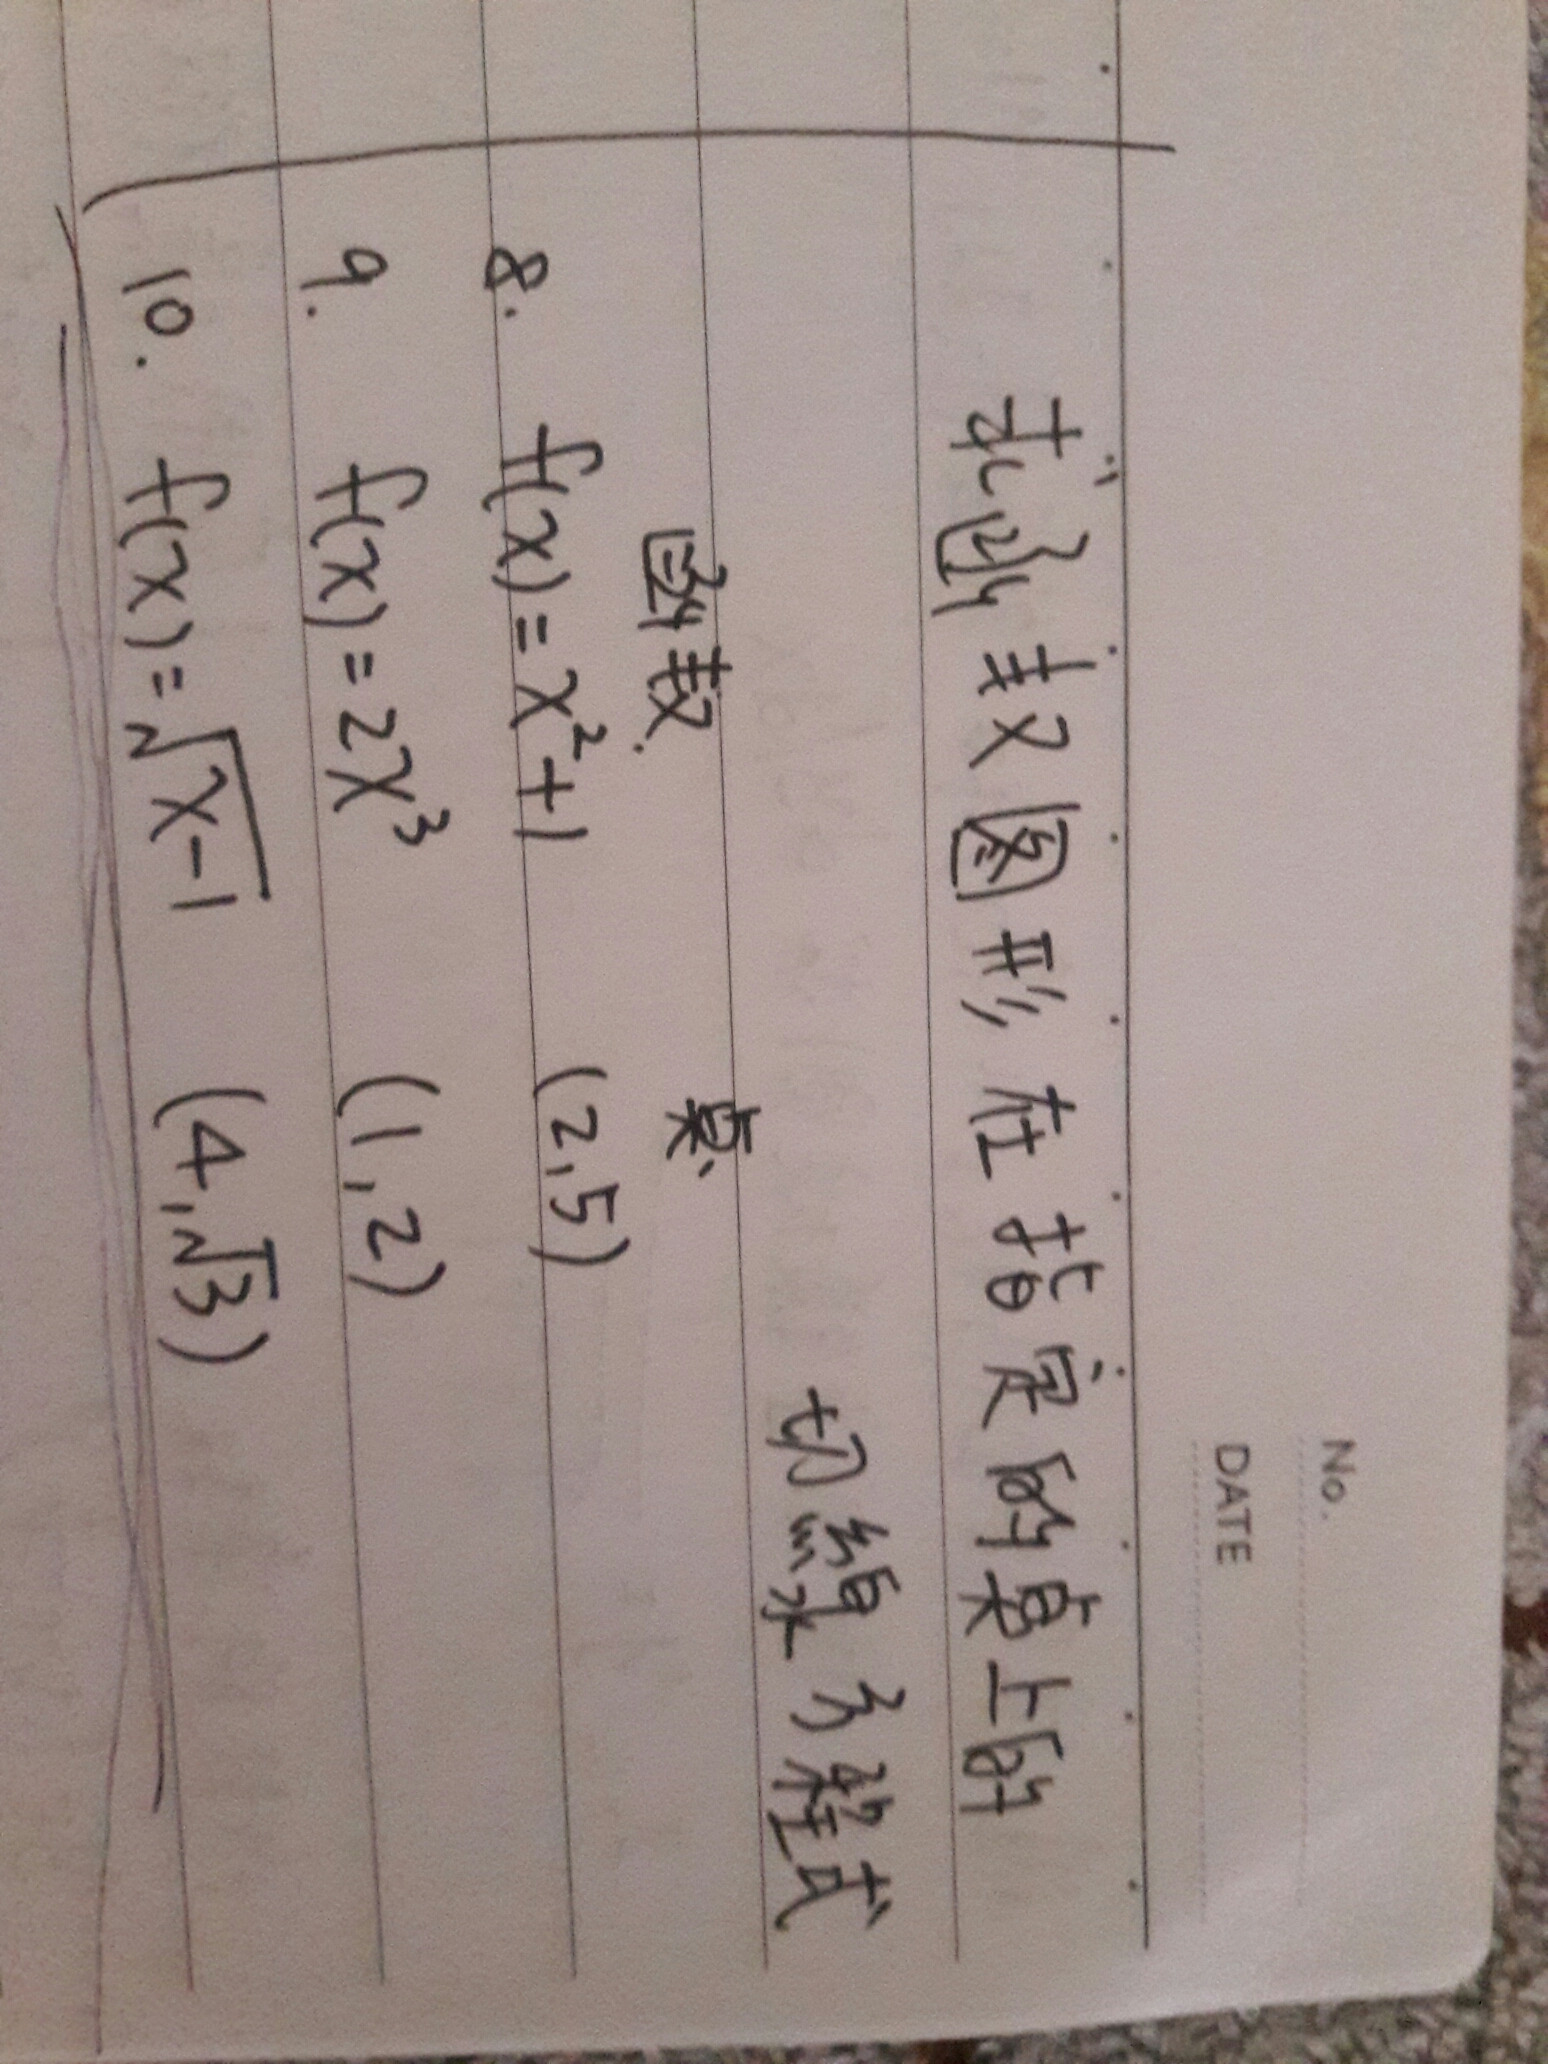 No.
DATE
求函数図形在指定的桌上的
切線方程式
函数 桌
8. f(x)=x²+1 (2,5)
9. f(x)=2x³ (1,2)
10. f(x)=√(x-1) (4,√3)